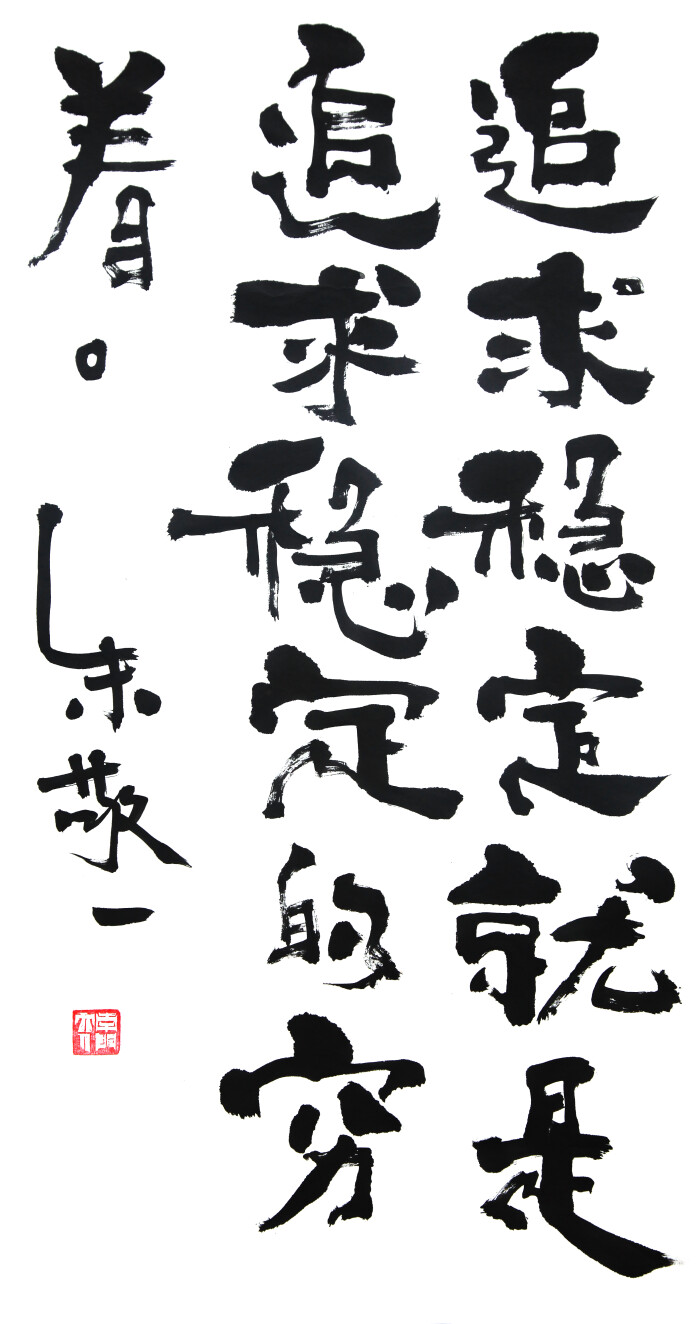 追求稳定就是
追求稳定的穷
着。
朱敬一